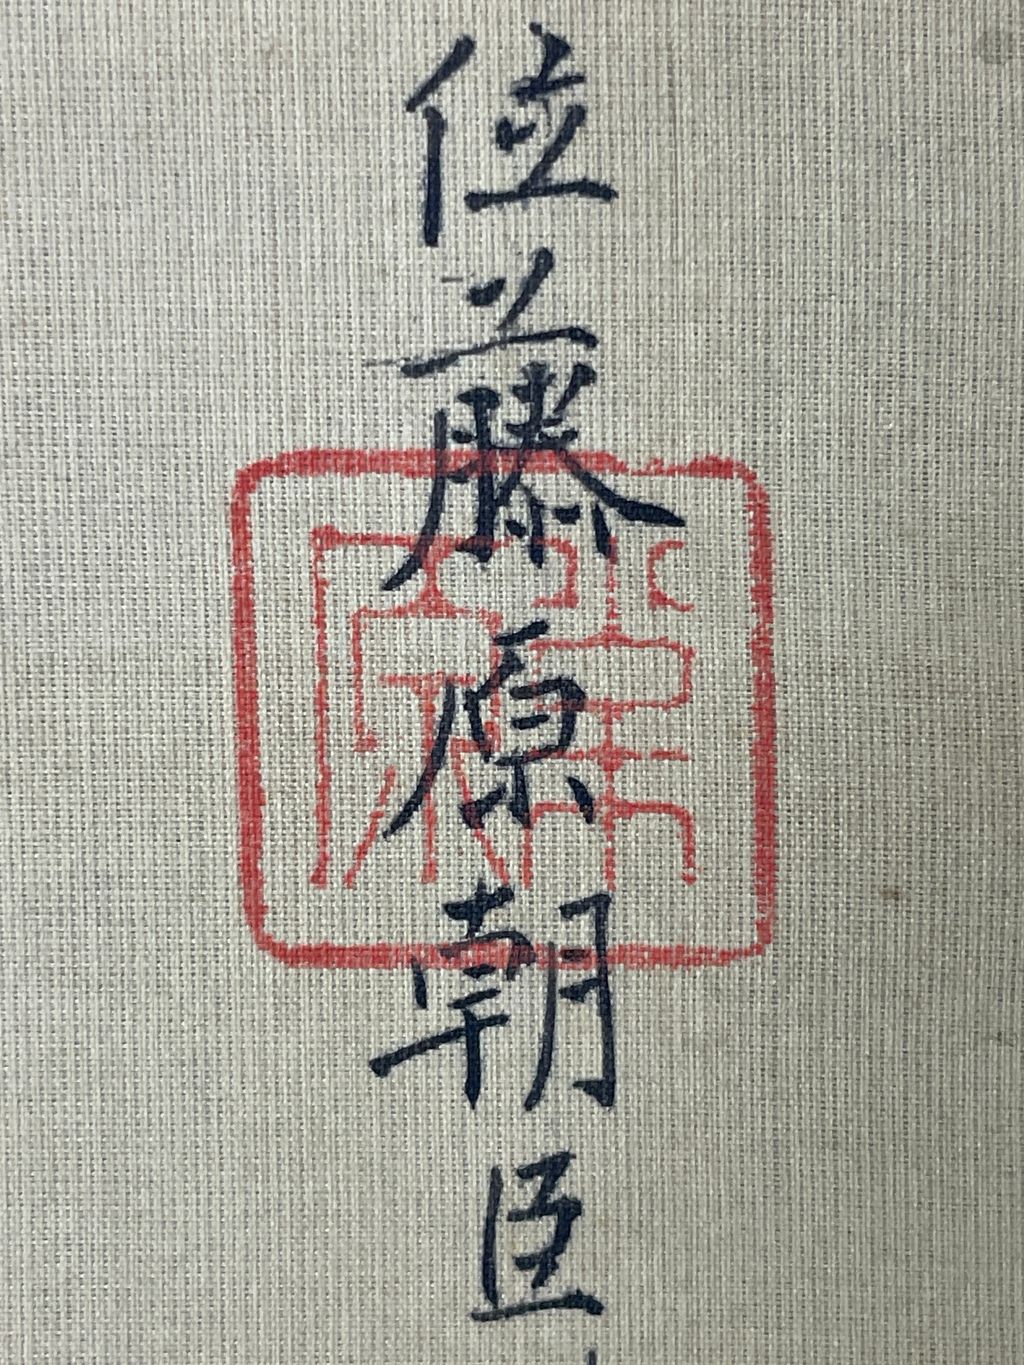 位藤原朝臣